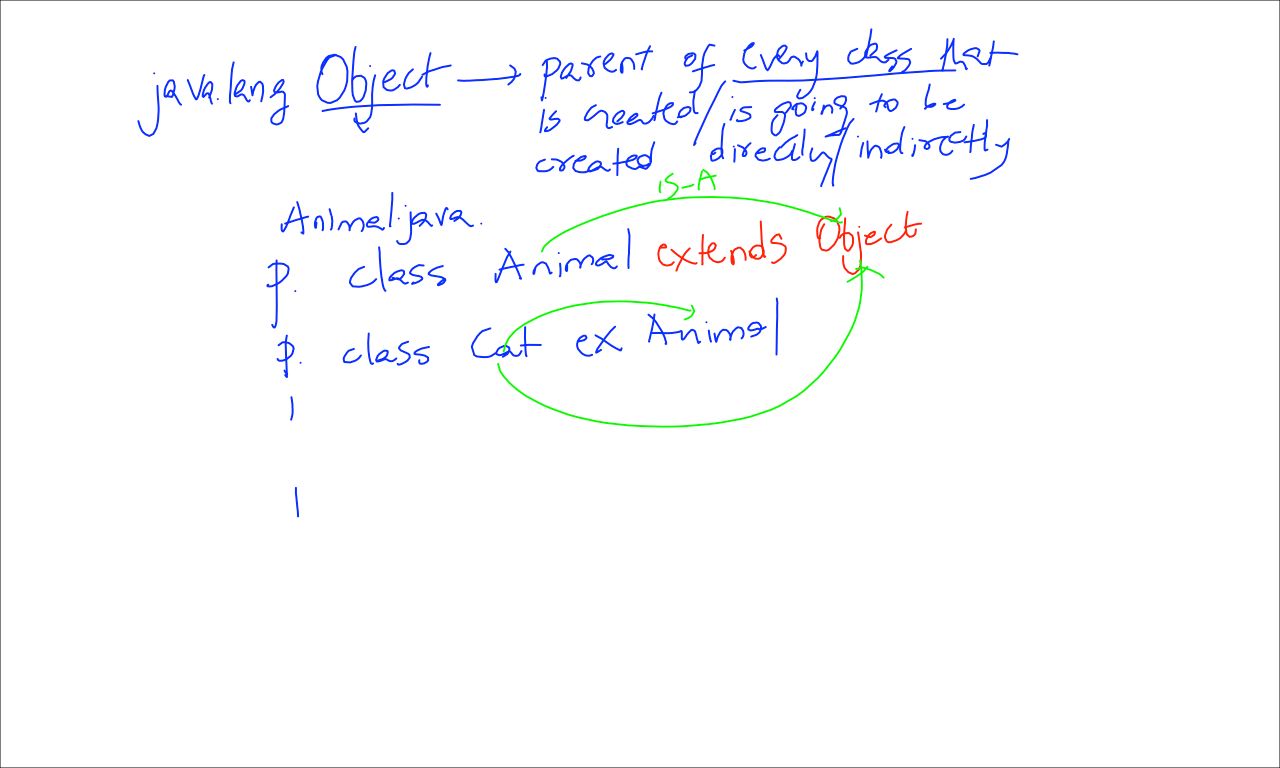 java.lang Object → parent of every class that
is created/is going to be
created directly/indirectly
is-A
Animal.java.
p. class Animal extends Object
p. class Cat ex Animal